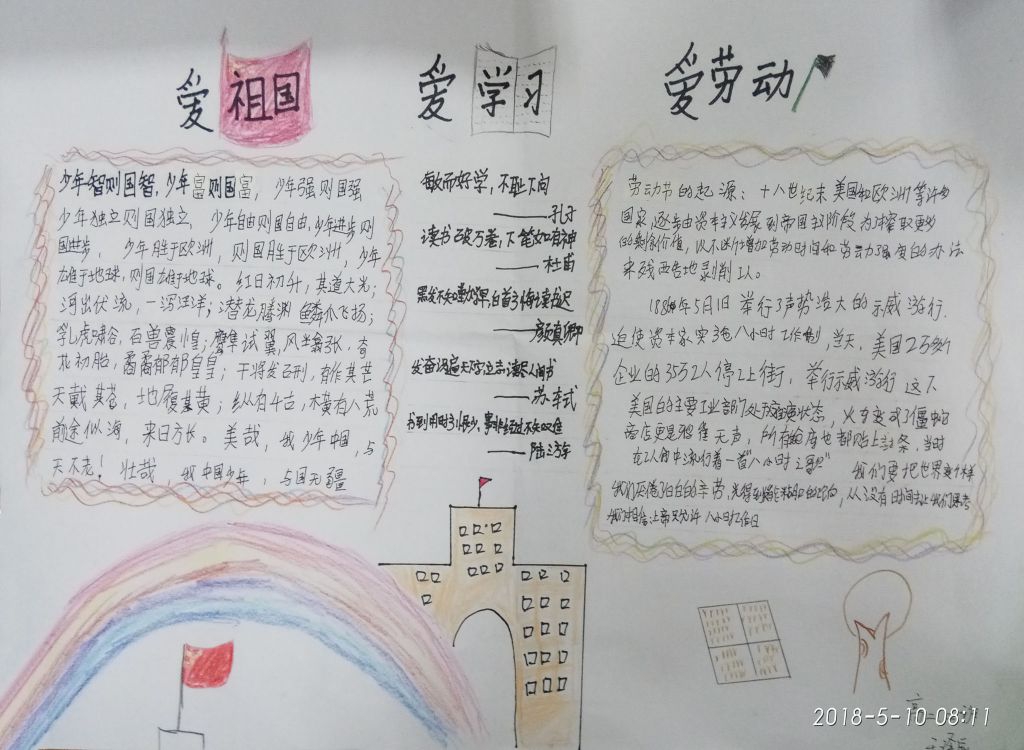 爱祖国
少年智则国智,少年富则国富,少年强则国强
少年独立则国独立,少年自由则国自由,少年进步则
国进步,少年胜于欧洲,则国胜于欧洲,少年
雄于地球,则国雄于地球。红日初升,其道大光;
河出伏流,一泻汪洋;潜龙腾渊,鳞爪飞扬;
乳虎啸谷,百兽震惶;鹰隼试翼,风尘翕张。奇
花初胎,矞矞郁郁皇皇;干将发石刑,有作其芒
天戴其苍,地履其黄;纵有千古,横有八荒
前途似海,来日方长。美哉,我少年中国,与
天不老!壮哉,我中国少年,与国无疆
爱学习
敏而好学,不耻下问
——孔子
读书破万卷,下笔如有神
——杜甫
黑发不知勤学早,白首方悔读书迟
——颜真卿
发奋识遍天下字,立志读尽人间书
——苏轼
书到用时方恨少,事非经过不知难
——陆游
爱劳动
劳动节的起源:十八世纪末美国和欧洲等许多
国家,逐步由资本主义发展到帝国主义阶段,为榨取更多
的剩余价值,以不断增加劳动时间和劳动强度的办法
来残酷地剥削工人。
年5月1日举行了声势浩大的示威游行.
迫使资本家实施八小时工作制,当天,美国2万多个
企业的35万工人停工上街,举行示威游行,这下
美国的主要工业部门处于瘫痪状态,火车变成了僵蛇
商店更是鸦雀无声,所有的仓库也都贴上封条,当时
在工人间中流行着一首“八小时之歌” 我们要把世界变个样
我们厌倦了白白的辛劳,光得到糊口的,从没有时间去让我们思考
我们相信:上帝只允许八小时工作日
2018-5-10 08:11